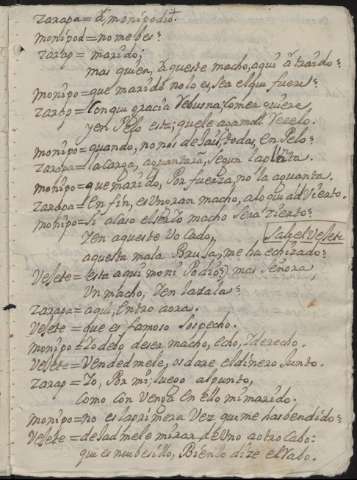 zarapa = d, monipodio.
monipod = no me ves?
zarap = marido;
mas quien, a queste macho, aqui á traido?
monipo = que marido no lo es, sea el que fuere?
zarap = Con que gracia rebusna; comer quiere,
y en Pelo esta; que le
monipo = quando, no nos dejais, todas, en Pelo?
zarapa = la carga, aguantara, segun la pinta.
monipo = que marido, Por fuerza, no la aguanta.
zarapa = En fin, es un gran macho, a lo que adVierto.
monipo = si acaso el otro macho sera tuerto?
Ven aqueste Vocado,
aquesta mala Bruja, me ha echizado?
Sale el Vejete
Vejete = esta aqui moni Podio? mas señora,
Un macho, Ven la sala?
zarapa = aqui, entro aora.
Vejete = que es famoso sospecho.
monipo = Todo lo de ser macho, echo, i derecho.
Vejete = Vendedmele, os dare el dinero junto.
zarap = Yo, Por mi, luego al punto,
como con Venga en ello mi marido.
monipo = no es la primera Vez que me has bendido?
Vejete = dejadmele mirar, de Uno a otro Cabo:
que es nuebesillo, Bien lo dize el rabo.